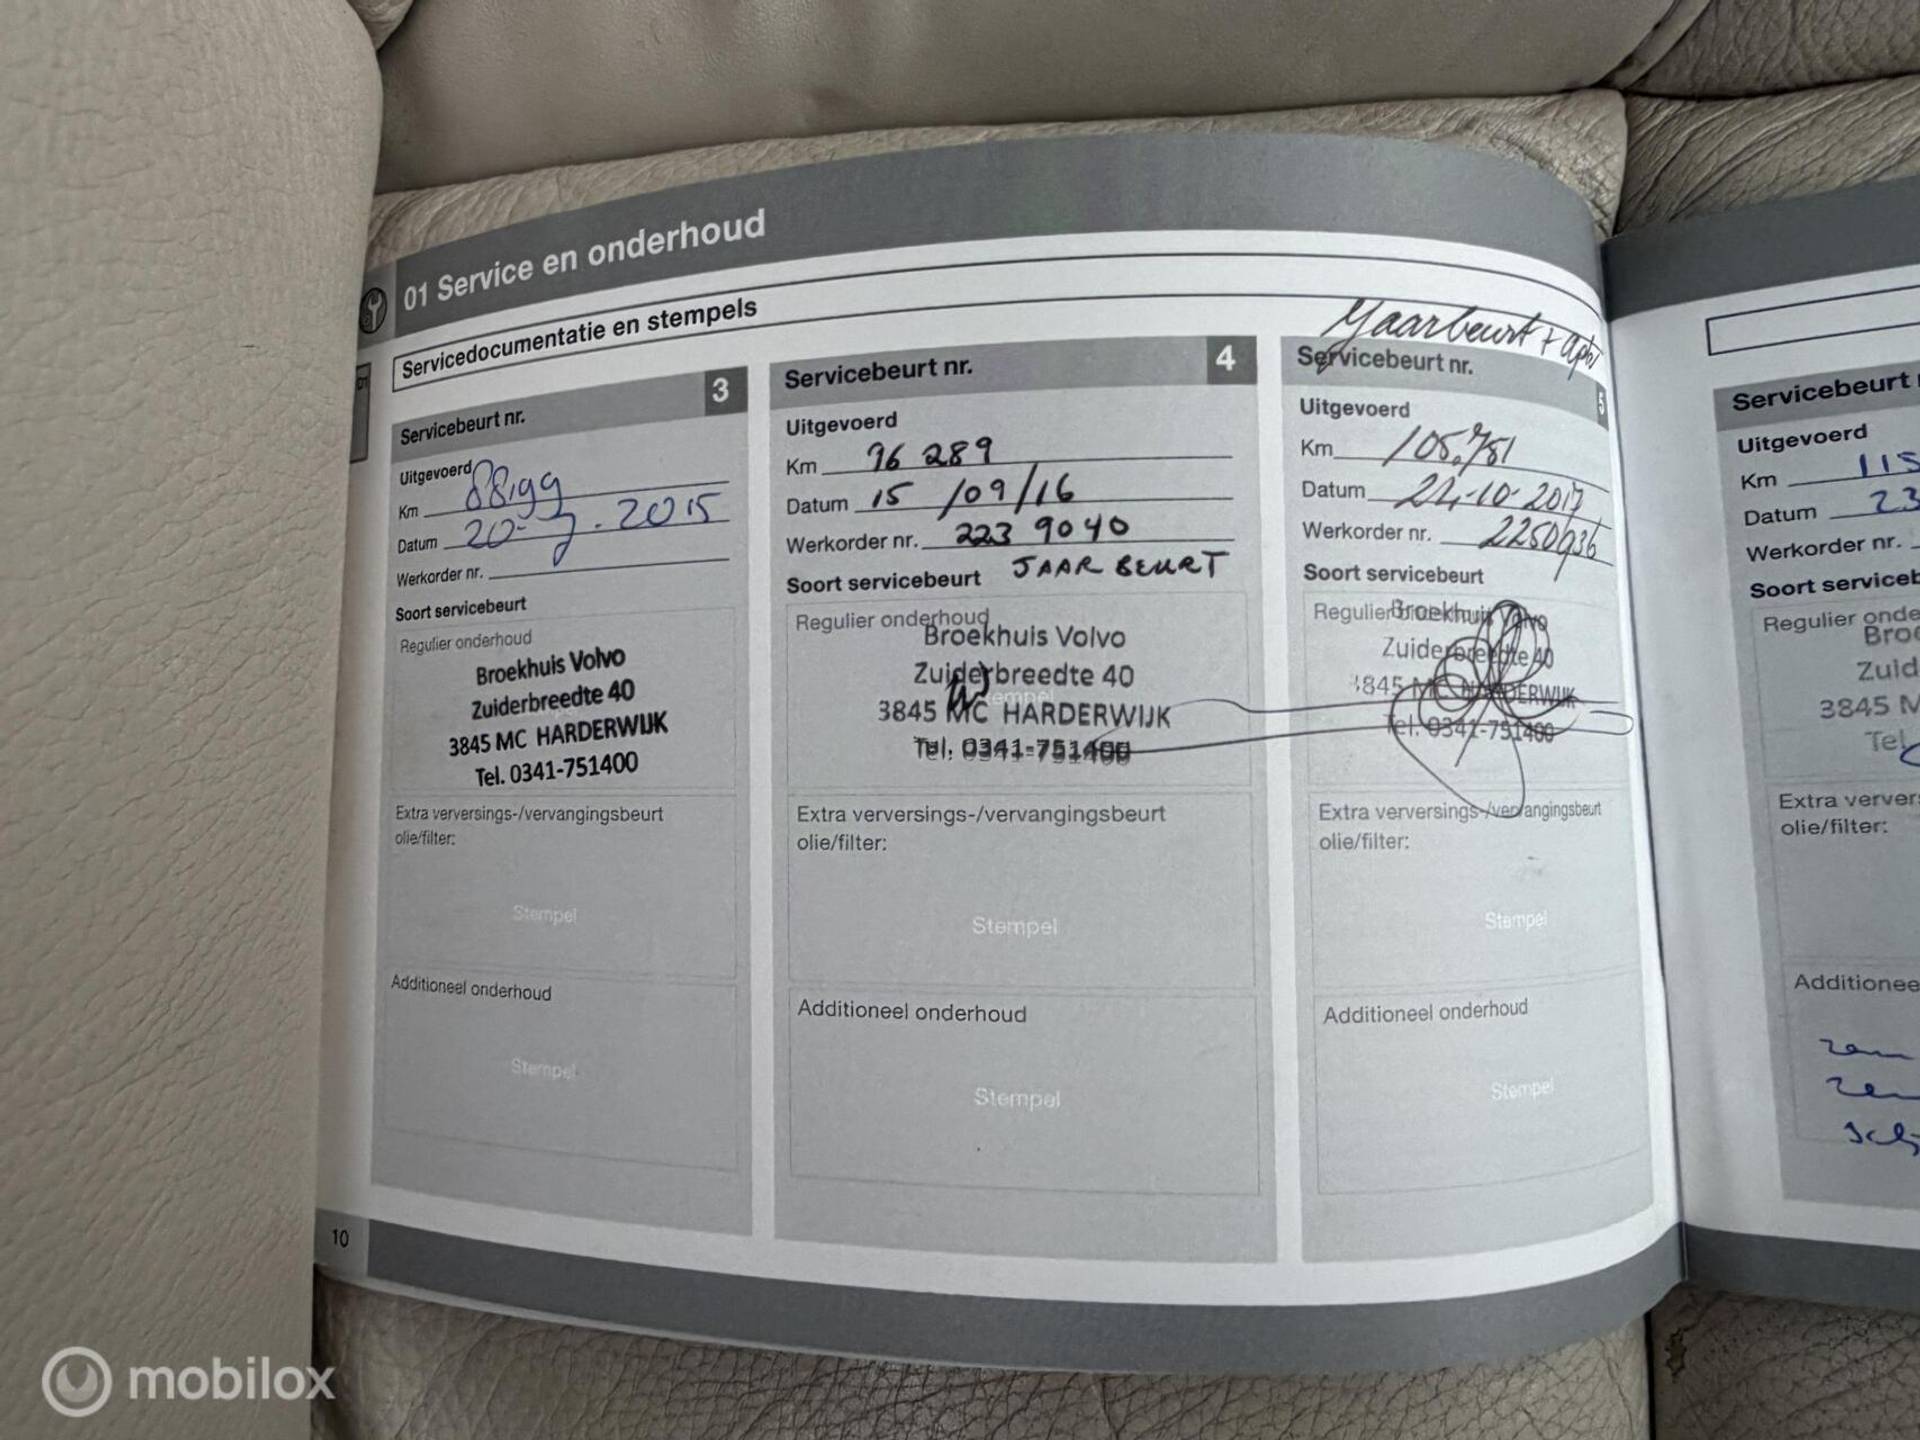 01 Service en onderhoud
Servicedocumentatie en stempels
Servicebeurt nr. 3
Uitgevoerd
Km
Datum 20-7-2015
Werkorder nr.
Soort servicebeurt
Regulier onderhoud
Broekhuis Volvo
Zuiderbreedte 40
3845 MC HARDERWIJK
Tel. 0341-751400
Extra verversings-/vervangingsbeurt
olie/filter:
Stempel
Additioneel onderhoud
Stempel
Servicebeurt nr. 4
Uitgevoerd
Km 96 289
Datum 15/09/16
Werkorder nr. 223 9040
Soort servicebeurt JAARBEURT
Regulier onderhoud
Broekhuis Volvo
Zuiderbreedte 40
Stempel
3845 MC HARDERWIJK
Tel. 0341-751400
Extra verversings-/vervangingsbeurt
olie/filter:
Stempel
Additioneel onderhoud
Stempel
Jaarbeurt +
Servicebeurt nr. 5
Uitgevoerd
Km 105.751
Datum 24-10-2017
Werkorder nr. 2250936
Soort servicebeurt
Regulier
Broekhuis Volvo
Zuiderbreedte 40
3845 MC HARDERWIJK
Tel. 0341-751400
Extra verversings-/vervangingsbeurt
olie/filter:
Stempel
Additioneel onderhoud
Stempel
10
Servicebeurt
Uitgevoerd
Km 115
Datum 23
Werkorder nr.
Soort serviceb
Regulier onde
Broe
Zuid
3845 M
Tel
Extra verver
olie/filter:
Additionee
mobilox